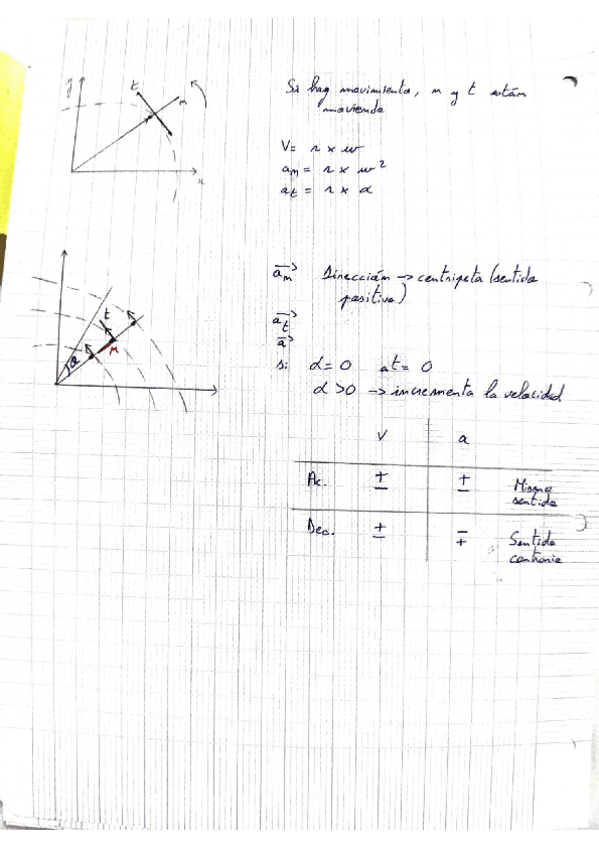 y
t
n
x
Si hay movimiento, n y t están
moviendo
V= r x w
an = r x w²
at = r x α
an Dirección → centripeta (sentido
positivo)
at
a
si α = 0 at = 0
α > 0 → incrementa la velocidad
t
n
α
V a
Ac. ± ± Mismo
sentido
Dec. ± ∓ Sentido
contrario